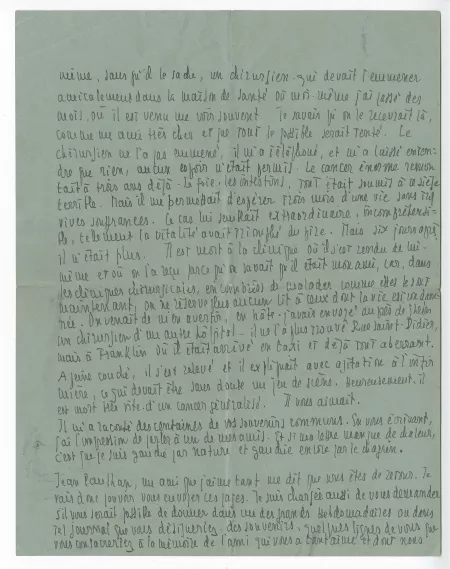 même, sans qu'il le sache, un chirurgien qui devait l'emmener
amicalement dans la maison de santé où moi-même j'ai passé des
mois, où il est venu me voir souvent. Je savais qu'on le recevrait là,
comme un ami très cher et que tout le possible serait tenté. Le
chirurgien ne l'a pas emmené, il m'a téléphoné, et m'a laissé enten-
dre que rien, aucun espoir n'était permis. Le cancer énorme remon-
tait à trois ans déjà. Le foie, les intestins, tout était soumis à
terrible. Mais il me permettait d'espérer trois mois d'une vie sans trop
vives souffrances. Le cas lui semblait extraordinaire, incompréhensi-
ble, tellement la vitalité avait triomphé du pire. Mais six jours après
il n'était plus. Il est mort à la clinique où il s'est rendu de lui-
même et où on l'a reçu parce qu'on savait qu'il était mon ami, car, dans
les cliniques chirurgicales, encombrées de malades comme elles le sont
maintenant, on ne réserve plus aucun lit à ceux dont la vie est condam-
née. On venait de m'en avertir, en hâte j'avais envoyé auprès de
un chirurgien d'un autre hôpital - il ne l'a plus trouvé rue Saint-Didier,
mais à Franklin où il était arrivé en taxi et déjà tout aberrant.
A peine couché, il s'est relevé et il expliquait avec agitation à l'infir
mière, ce qui devait être sans doute un jeu de scène. Heureusement, il
est mort très vite d'un cancer généralisé. Il vous aimait.
Il m'a raconté des centaines de vos souvenirs communs. En vous écrivant,
j'ai l'impression de parler à un de mes amis. Et si ma lettre manque de chaleur,
c'est que je suis gauche par nature et gauche encore par le chagrin.
Jean Paulhan, un ami que j'aime tant me dit que vous êtes de retour. Je
vais donc pouvoir vous envoyer ces pages. Je suis chargée aussi de vous demander
s'il vous serait possible de donner dans un des grands hebdomadaires ou dans
tel journal que vous désigneriez des souvenirs, quelques lignes de vous que
vous consacreriez à la mémoire de l'ami qui vous a tant aimé et dont nous